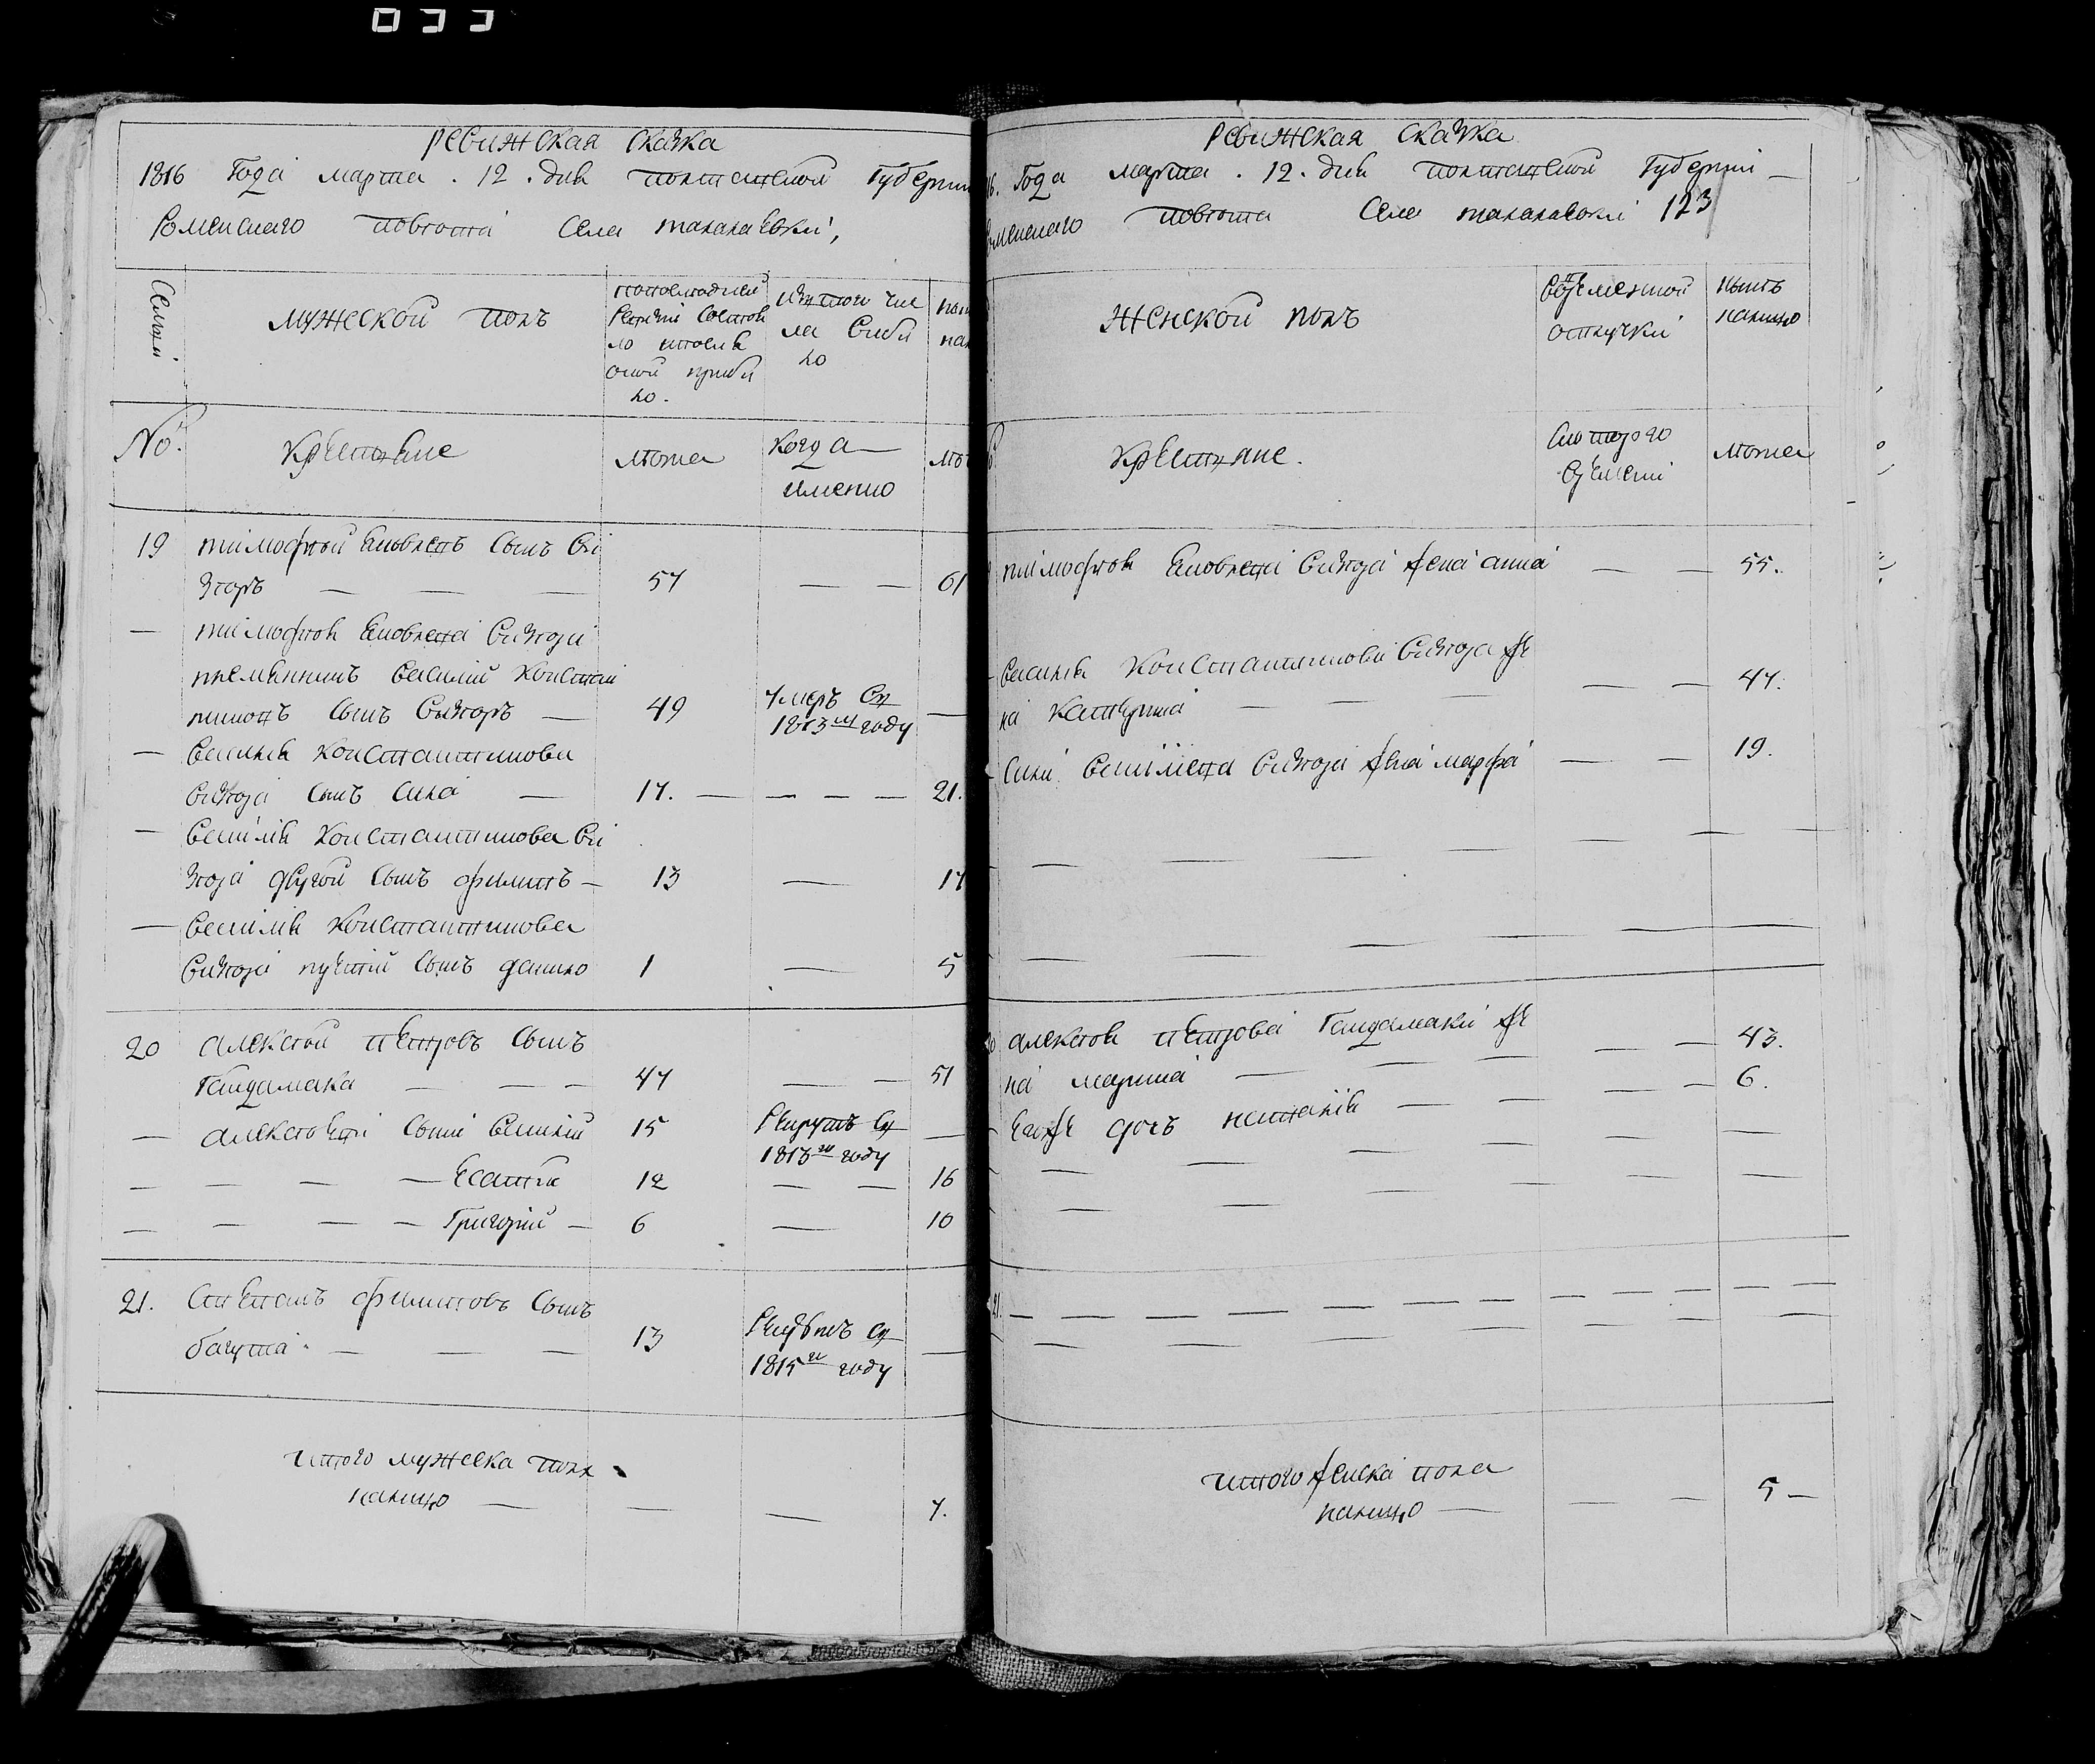 Ревижская скаска
1816 Года марта . 12 . дня полтавской Губернии
Роменскаго повета Села талалаевки,
Семьи
мужеской полъ
по последней ревизии состояло и после оной прибыло.
Изъ того числа выбыло
No.
крестьяне
лета
когда именно
19 тимофей яковлевъ сынъ Ви
зоръ — — — 57 — — 61
— тимофея яковлева Визора
племянникъ василий констан
тиновъ сынъ Визоръ — 49 умеръ въ 1813м году —
— василия константинова
Визора сынъ сила — 17. — — — — 21.
— василия константинова Ви
зора другой сынъ филипъ — 13 — 17
— василия константинова
Визора третий сынъ данило 1 — 5
20 алексей петровъ сынъ
Гайдамака — — — 47 — — 51
— алексеевы сыны василий 15 Рекрутъ въ 1813м году —
— — — — Есатей 12 — — 16
— — — — Григорий — 6 — 10
21. степанъ филиповъ сынъ
багута . — — — 13 Рекрутъ въ 1815м году —
итого мужеска пола
налицо — — — 7.
033
Ревижская скаска
Года марта . 12 . дня полтавской Губернии —
Роменскаго повета Села талалаевки 123
женской полъ
Временной отлучки
ныне налицо
крестьяне.
съ которого времени
лета
тимофея яковлева Визора жена анна — — 55.
василия константинова Визора же
на катерина — — — — — 47.
силы василиева Визора жена марфа — — 19.
20 алексея петрова Гайдамаки же
на марина — — — — — 43.
Ево же дочь наталия — — — — 6.
21. — — — — — — — — — — — —
итого женска пола
налицо — — — 5 —